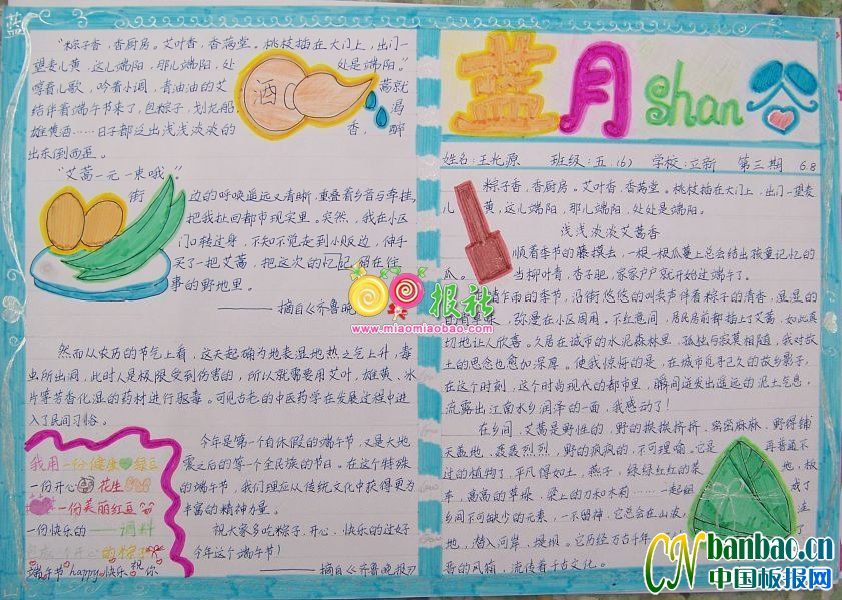 “粽子香，香厨房。艾叶香，香满堂。桃枝插在大门上，出门一
望麦儿黄，这儿端阳，那儿端阳，处处是端阳。”
哼着儿歌，吟着小调，青油油的艾蒿就
结伴着端午节来了，包粽子，划龙船，渴
雄黄酒……日子都这出浅浅浓浓的香，醉
出东倒西歪。
“艾蒿一元一束哦。”
街边的呼唤遥远又清晰，重叠着乡音与牵挂，
把我扯回都市现实里。突然，我在小区
门口转过身，不知不觉走到小贩边，伸手
买了一把艾蒿，把这次的忆记留在往
事的野地里。
———摘自《齐鲁晚
然而从农历的节气上看，这天起确为地表湿地热之气上升，毒
虫所出洞，此时人是极限受到伤害的，所以就需要用艾叶，雄黄、冰
片等芳香化湿的药材进行驱毒。可见古老的中医药学在发展过程中进
入了民间习俗。
今年是第一个自休假的端午节，又是大地
震之后的第一个全民族的节日。在这个特殊
的端午节，我们理应从传统文化中获得更为
丰富的精神力量。
祝大家多吃粽子，开心、快乐的过好
今年这个端午节！
———摘自《齐鲁晚报》
我用一份健康绿豆
一份开心花生
一份美丽红豆
一份快乐的——调料
端午节happy快乐祝你
酒
蓝月shan谷
姓名：王允源 班级：五（6） 学校：立新 第三期 6.8
粽子香，香厨房。艾叶香，香满堂。桃枝插在大门上，出门一望麦
儿黄，这儿端阳，那儿端阳，处处是端阳。
浅浅浓浓艾蒿香
顺着季节的藤摸去，一根一根瓜蔓上总会结出孩童记忆的
瓜。当柳叶青，杏子肥，家家户户就开始过端午了。
作雨的季节，沿街悠悠的叫卖声伴着粽子的清香，湿湿的
弥漫在小区周围。不经意间，居民房前都插上了艾蒿，如此真
切地让人欣喜。久居在城市的水泥森林里，孤独与寂寞相随，我对故
土的思念也愈加深厚。使我惊讶的是，在城市觅寻已久的故乡影子，
在这个时刻，这个时尚现代的都市里，瞬间迸发出遥远的泥土气息，
流露出江南水乡润泽的一面，我感动了！
在乡间，艾蒿是野性的，野的挨挨挤挤、窝窝麻麻，野得铺
天盖地，轰轰烈烈，野的疯疯的，不可理喻。它是再普通不
过的植物了，平凡得如土，燕子，绿绿红红的菜地，板
车，高高的草垛，梁上的刀和木莉……一起组成了
乡间不可缺少的元素，一不留神，它总会在山坡、洼
地，潜入河岸、堤坝。它历经万古千年
香的风箱，流传着千古文化。
报社
www.miaomiaobao.com
CN banbao.cn
中国板报网